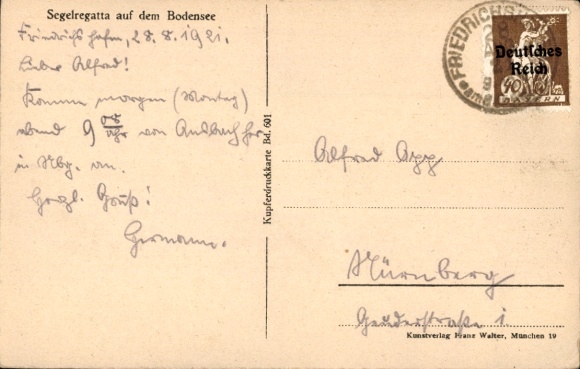 Segelregatta auf dem Bodensee
Friedrichshafen, 28.8.1921.
Lieber Alfred!
Komme morgen (Montag)
abend 9 08 Uhr von Ansbach her
in Nbg. an.
Herzl. Gruß!
Germann.
Kupferdruckkarte Bd. 601
FRIEDRICHSH
Deutsches
Reich
40
BAYERN
Alfred App
Nürnberg
Geuderstraße 1.
Kunstverlag Franz Walter, München 19